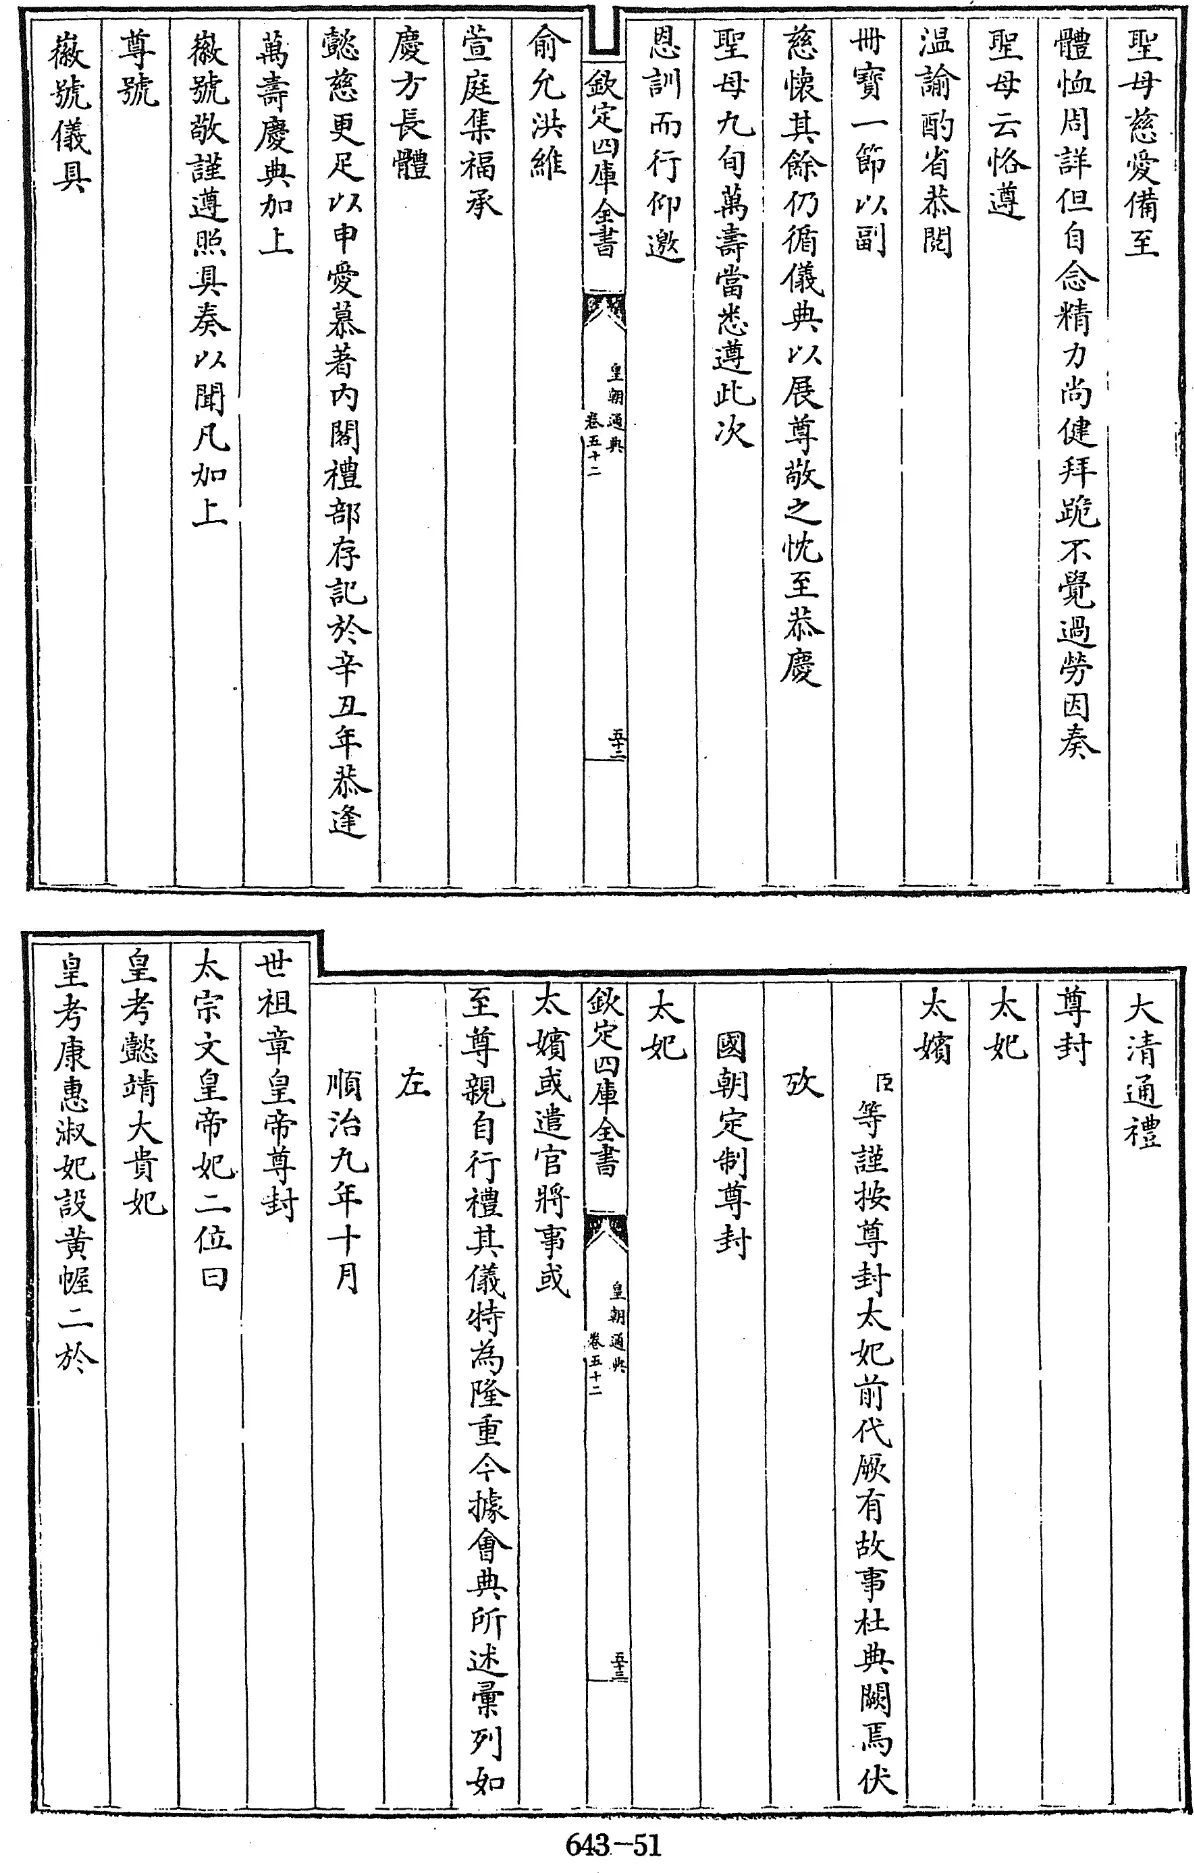 聖母慈愛備至
體恤周詳但自念精力尚健拜跪不覺過勞因奏
聖母云恪遵
温諭酌省恭閲
冊寳一節以副
慈懐其餘仍循儀典以展尊敬之忱至恭慶
聖母九旬萬壽當悉遵此次
恩訓而行仰邀
欽定四庫全書
皇朝通典
卷五十二
五十二
俞允洪維
萱庭集福承
慶方長體
懿慈更足以申愛慕著内閣禮部存記於辛丑年恭逢
萬壽慶典加上
徽號敬謹遵照具奏以聞凡加上
尊號
徽號儀具
大清通禮
尊封
太妃
太嬪
臣等謹按尊封太妃前代厥有故事杜典闕焉伏
攷
國朝定制尊封
太妃
欽定四庫全書
皇朝通典
卷五十二
五十三
太嬪或遣官將事或
至尊親自行禮其儀特為隆重今據會典所述彙列如
左
順治九年十月
世祖章皇帝尊封
太宗文皇帝妃二位曰
皇考懿靖大貴妃
皇考康惠淑妃設黄幄二於
643-51